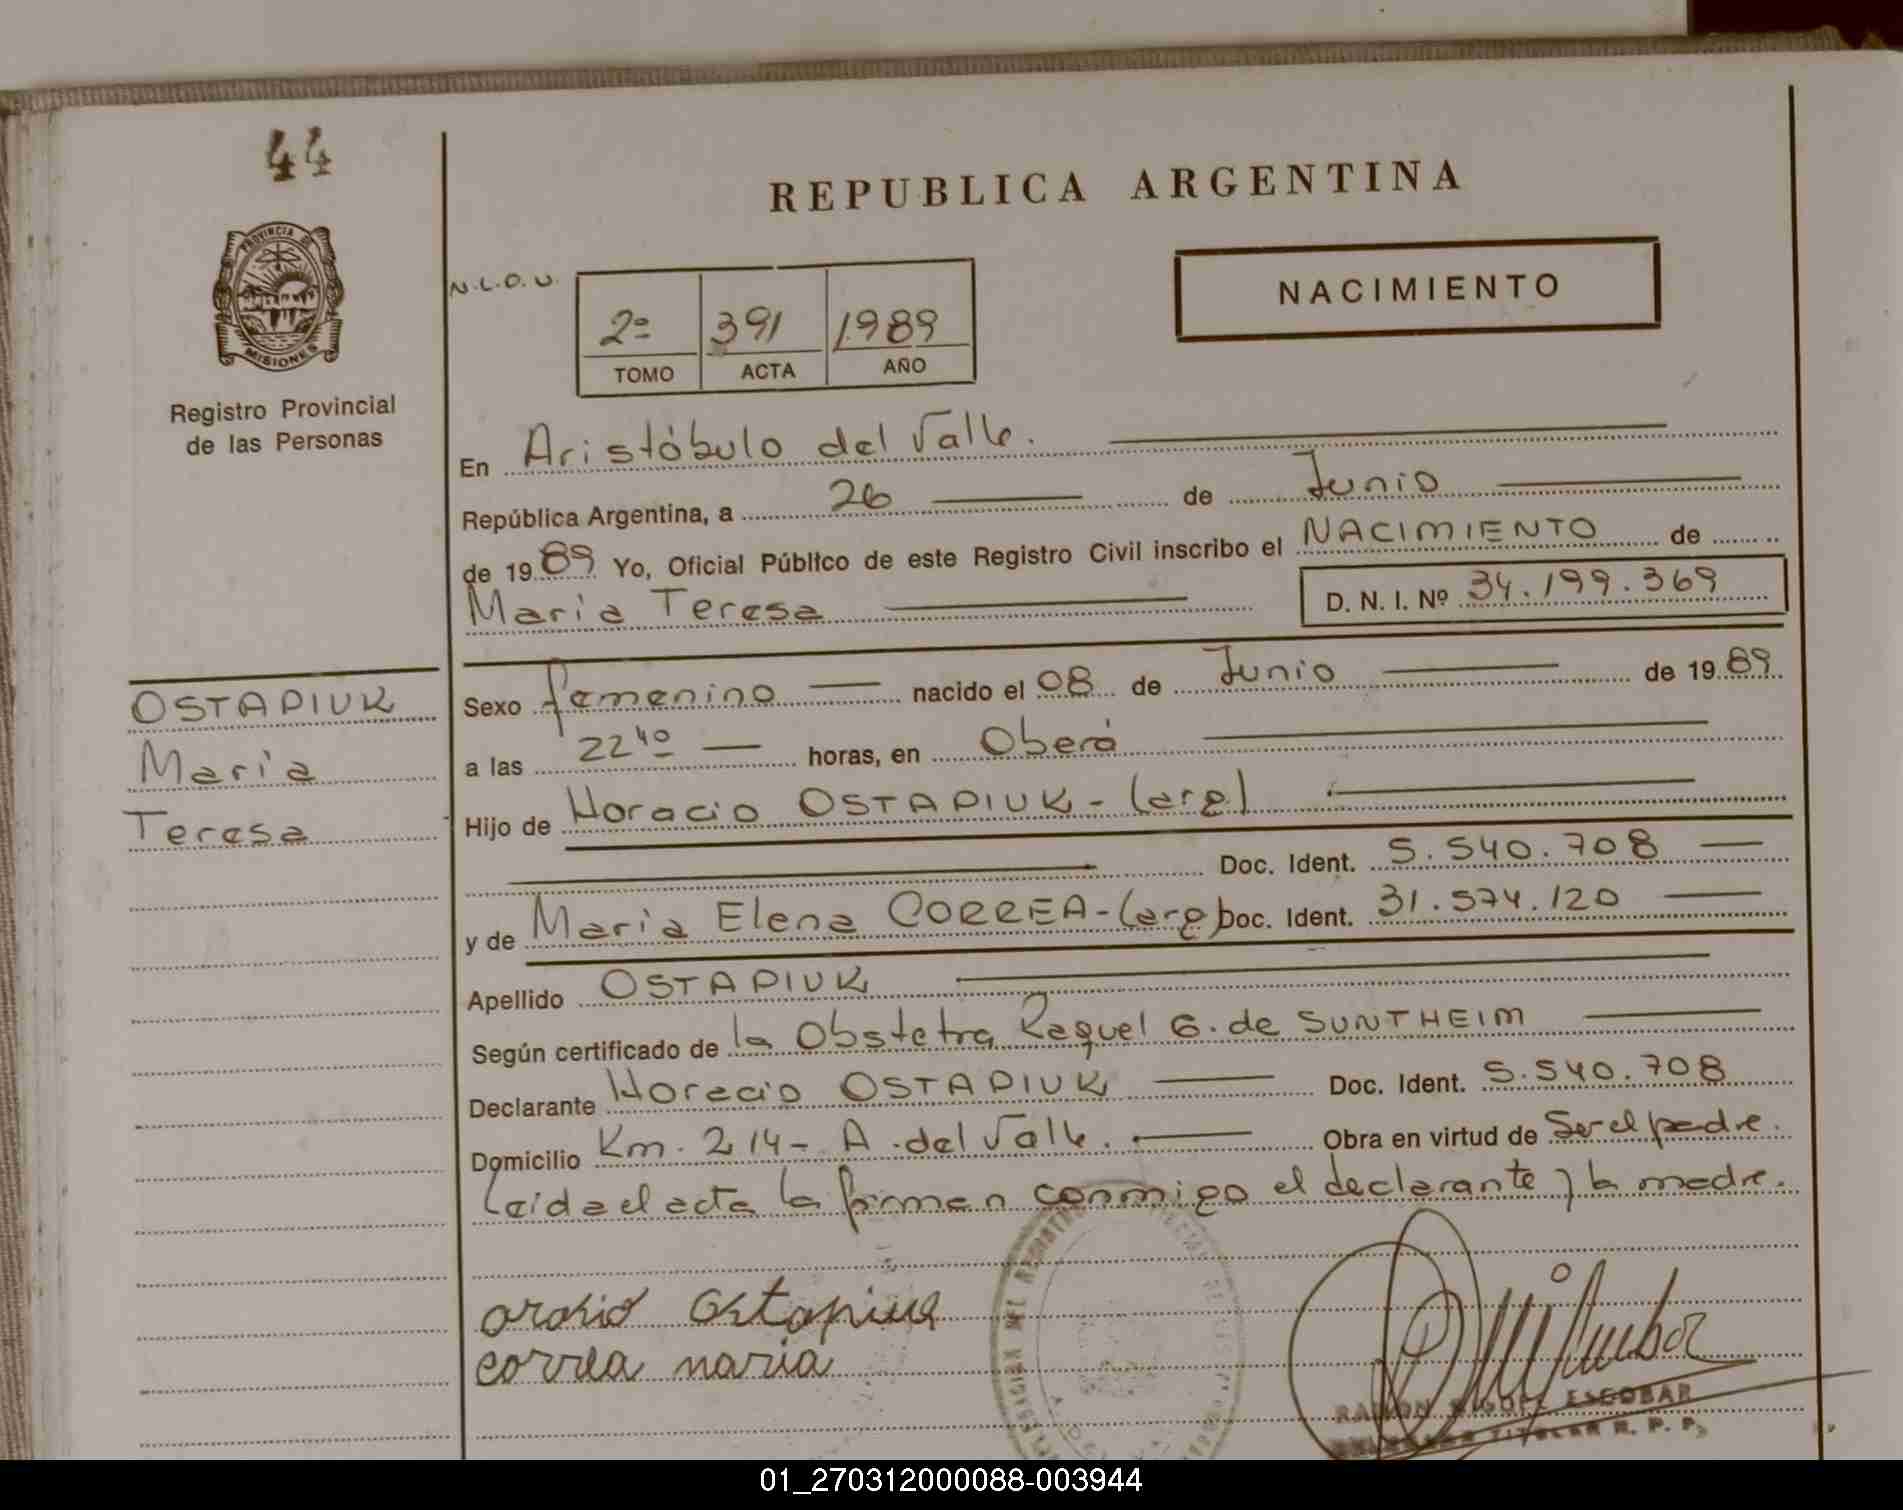 44
REPUBLICA ARGENTINA
PROVINCIA DE
MISIONES
Registro Provincial
de las Personas
N.L.O.U.
2º 391 1989
TOMO ACTA AÑO
NACIMIENTO
En Aristóbulo del Valle.
República Argentina, a 26 de Junio
de 1989 Yo, Oficial Público de este Registro Civil inscribo el NACIMIENTO de
María Teresa D. N. I. Nº 34.199.369
OSTAPIUK
María
Teresa
Sexo femenino nacido el 08 de Junio de 1989
a las 22 40 horas, en Oberá
Hijo de Horacio OSTAPIUK - (arg)
Doc. Ident. 5.540.708
y de María Elena CORREA - (arg) Doc. Ident. 31.574.120
Apellido OSTAPIUK
Según certificado de la Obstetra Raquel G. de SUNTHEIM
Declarante Horacio OSTAPIUK Doc. Ident. 5.540.708
Domicilio Km. 214 - A. del Valle. Obra en virtud de Ser el padre.
Leida el acta la firman conmigo el declarante y la madre.
orasio Ostapiuk
correa maria
RAMON MIGUEL ESCOBAR
TITULAR R. P. P.
01_270312000088-003944